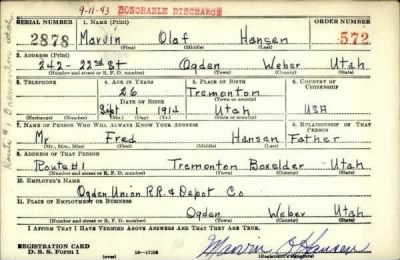 9-11-43 HONORABLE DISCHARGE
SERIAL NUMBER 1. NAME (Print) ORDER NUMBER
2878 Marvin Olaf Hansen 572
(First) (Middle) (Last)
2. ADDRESS (Print)
242-22nd St Ogden Weber Utah
(Number and street or R. F. D. number) (Town) (County) (State)
3. TELEPHONE 4. AGE IN YEARS 5. PLACE OF BIRTH 6. COUNTRY OF CITIZENSHIP
26 Tremonton
DATE OF BIRTH (Town or county)
Sept 1 1914 Utah USA
(Exchange) (No.) (Mo.) (Day) (Yr.) (State or country)
7. NAME OF PERSON WHO WILL ALWAYS KNOW YOUR ADDRESS 8. RELATIONSHIP OF THAT PERSON
Mr Fred Hansen Father
(Mr., Mrs., Miss) (First) (Middle) (Last)
9. ADDRESS OF THAT PERSON
Route #1 Tremonton Boxelder Utah
(Number and street or R. F. D. number) (Town) (County) (State)
10. EMPLOYER'S NAME
Ogden Union R.R. & Depot Co
11. PLACE OF EMPLOYMENT OR BUSINESS
Ogden Weber Utah
(Number and street or R. F. D. number) (Town) (County) (State)
I AFFIRM THAT I HAVE VERIFIED ABOVE ANSWERS AND THAT THEY ARE TRUE.
REGISTRATION CARD
D. S. S. Form 1 Marvin O Hansen
(Registrant's signature)
Route #1, Tremonton Utah